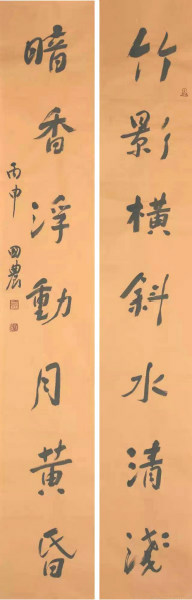 竹影橫斜水清淺
暗香浮動月黃昏
丙申
田農